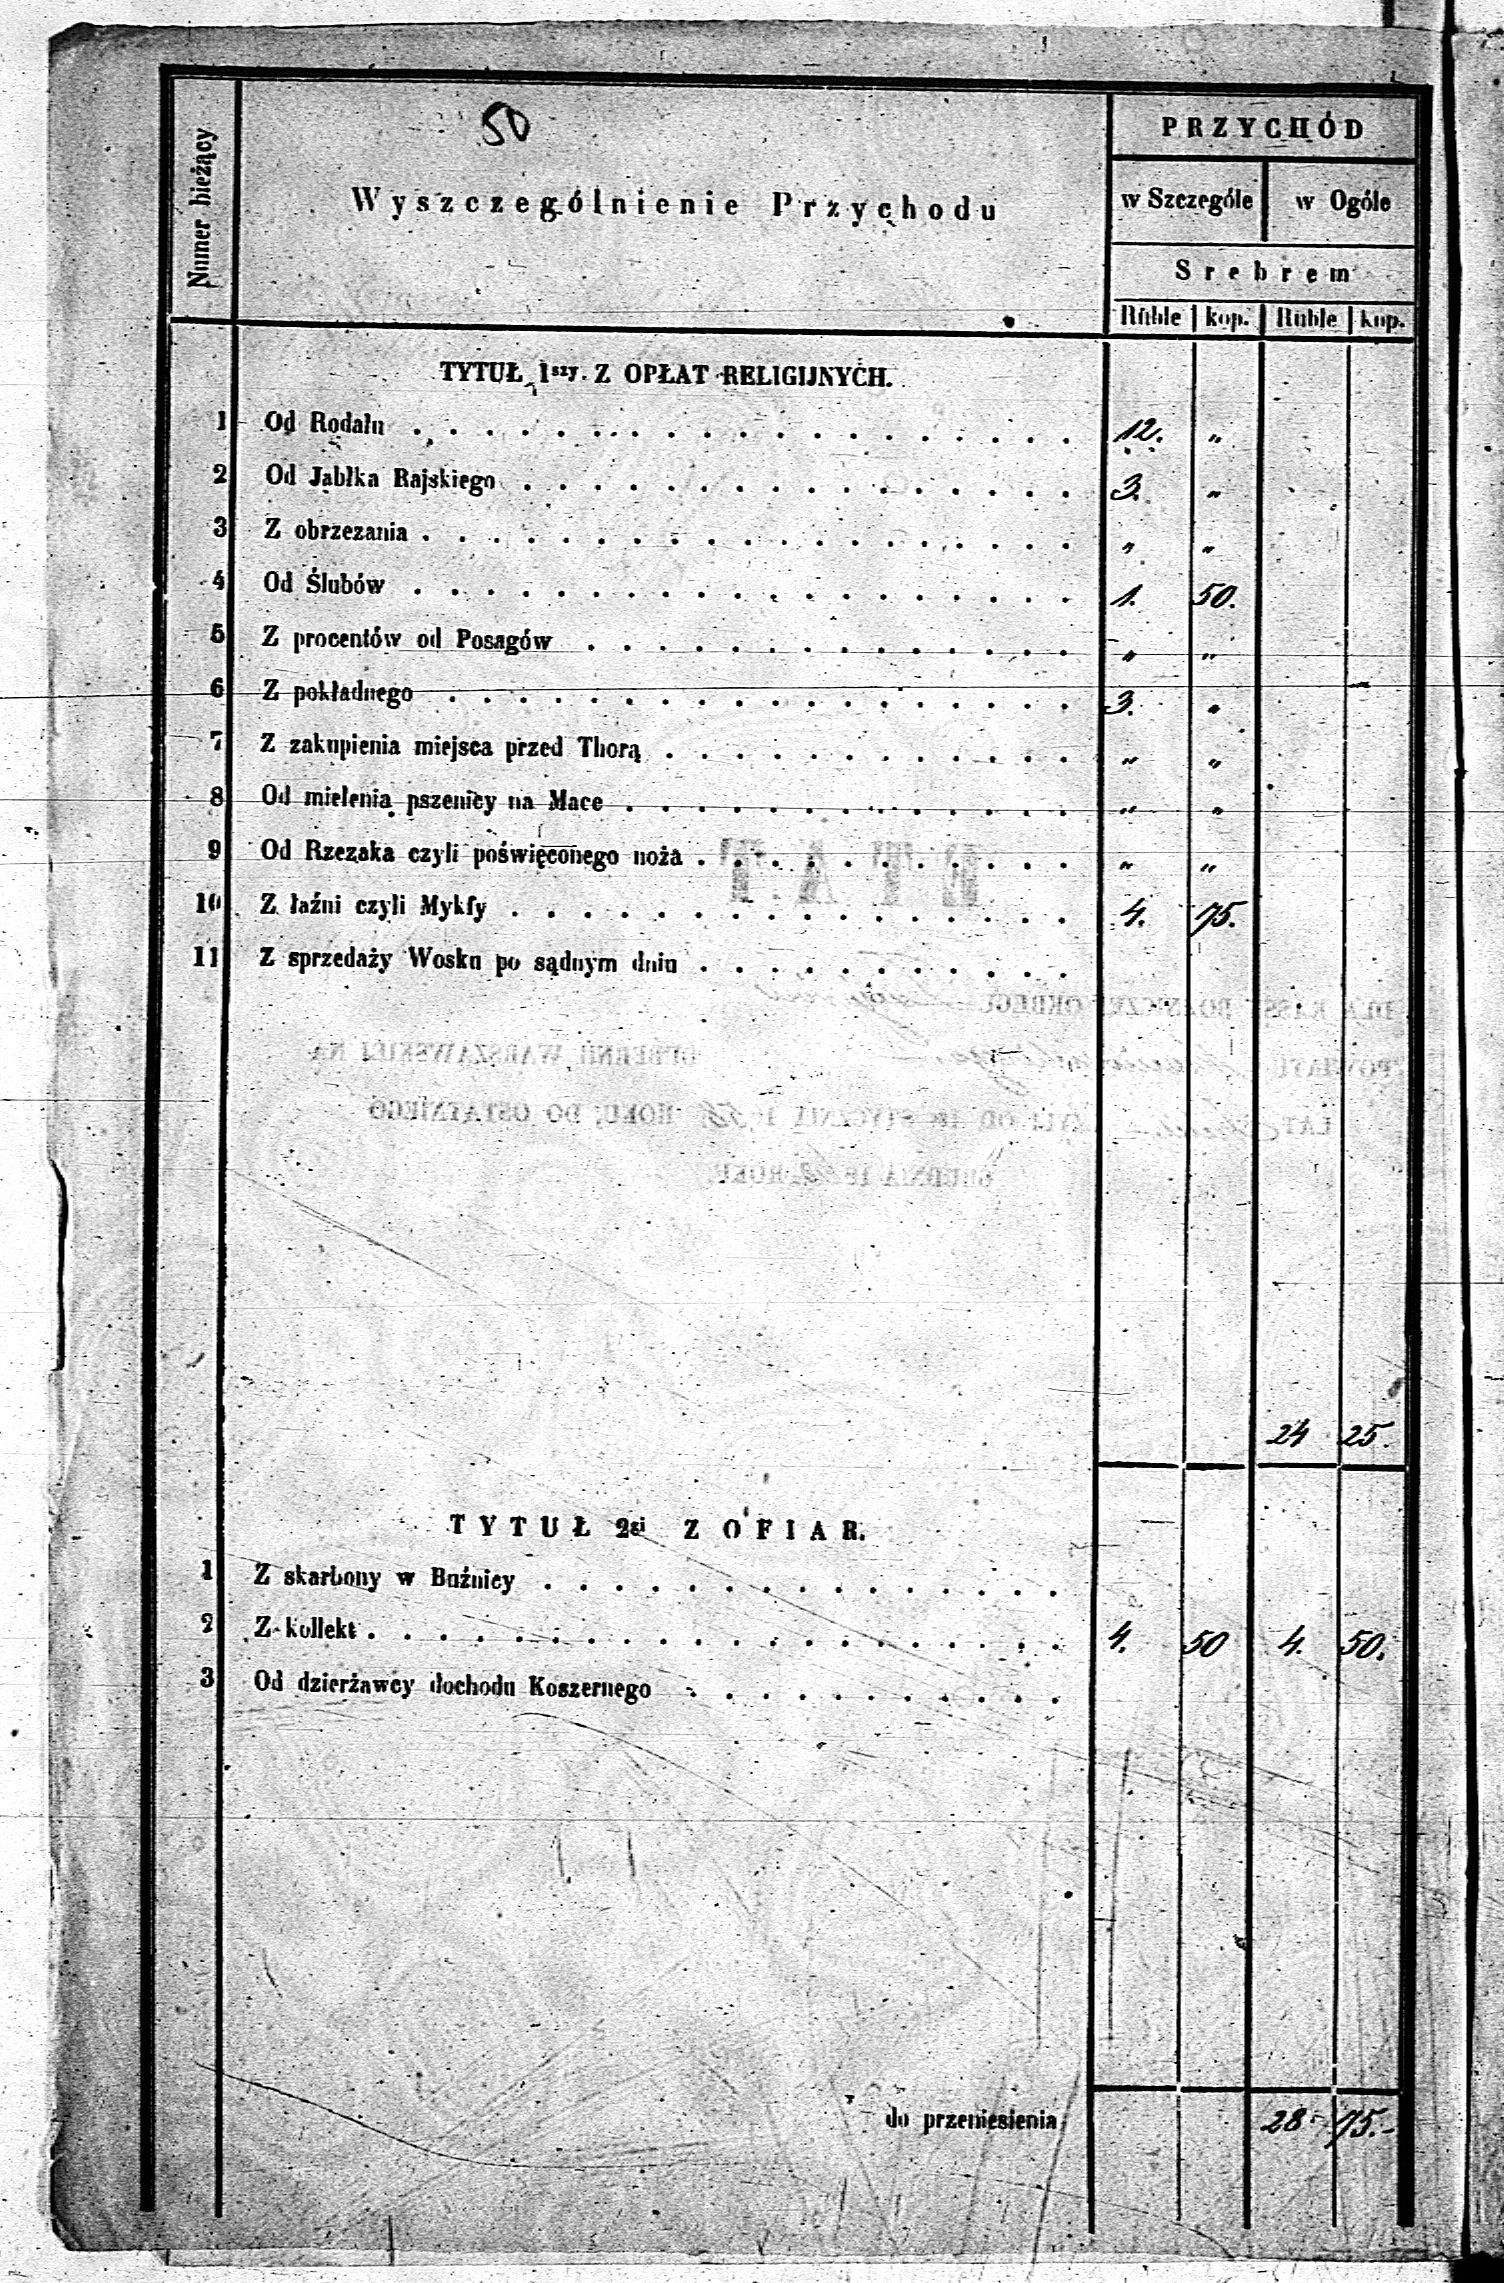 50
Numer bieżący
Wyszczególnienie Przychodu
PRZYCHÓD
w Szczególe w Ogóle
Srebrem
Ruble kop. Ruble kop.
TYTUŁ 1szy. Z OPŁAT RELIGIJNYCH.
1 Od Rodału . . . . . . . . . . 12. "
2 Od Jabłka Rajskiego . . . . . . . . . . 3. "
3 Z obrzezania . . . . . . . . . . " "
4 Od Ślubów . . . . . . . . . . 1. 50.
5 Z procentów od Posagów . . . . . . . . . . " "
6 Z pokładnego . . . . . . . . . . 3. "
7 Z zakupienia miejsca przed Thorą . . . . . . . . . . " "
8 Od mielenia pszenicy na Mace . . . . . . . . . . " "
9 Od Rzezaka czyli poświęconego noża . . . . . . . . . . " "
10 Z łaźni czyli Mykfy . . . . . . . . . . 4. 75.
11 Z sprzedaży Wosku po sądnym dniu . . . . . . . . . .
24 25.
TYTUŁ 2gi Z OFIAR.
1 Z skarbony w Bóźnicy . . . . . . . . . .
2 Z kollekt . . . . . . . . . . 4. 50 4. 50.
3 Od dzierżawcy dochodu Koszernego . . . . . . . . . .
do przeniesienia 28 75.-